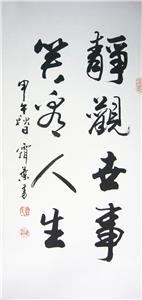 靜觀世事
笑看人生
甲午秋日